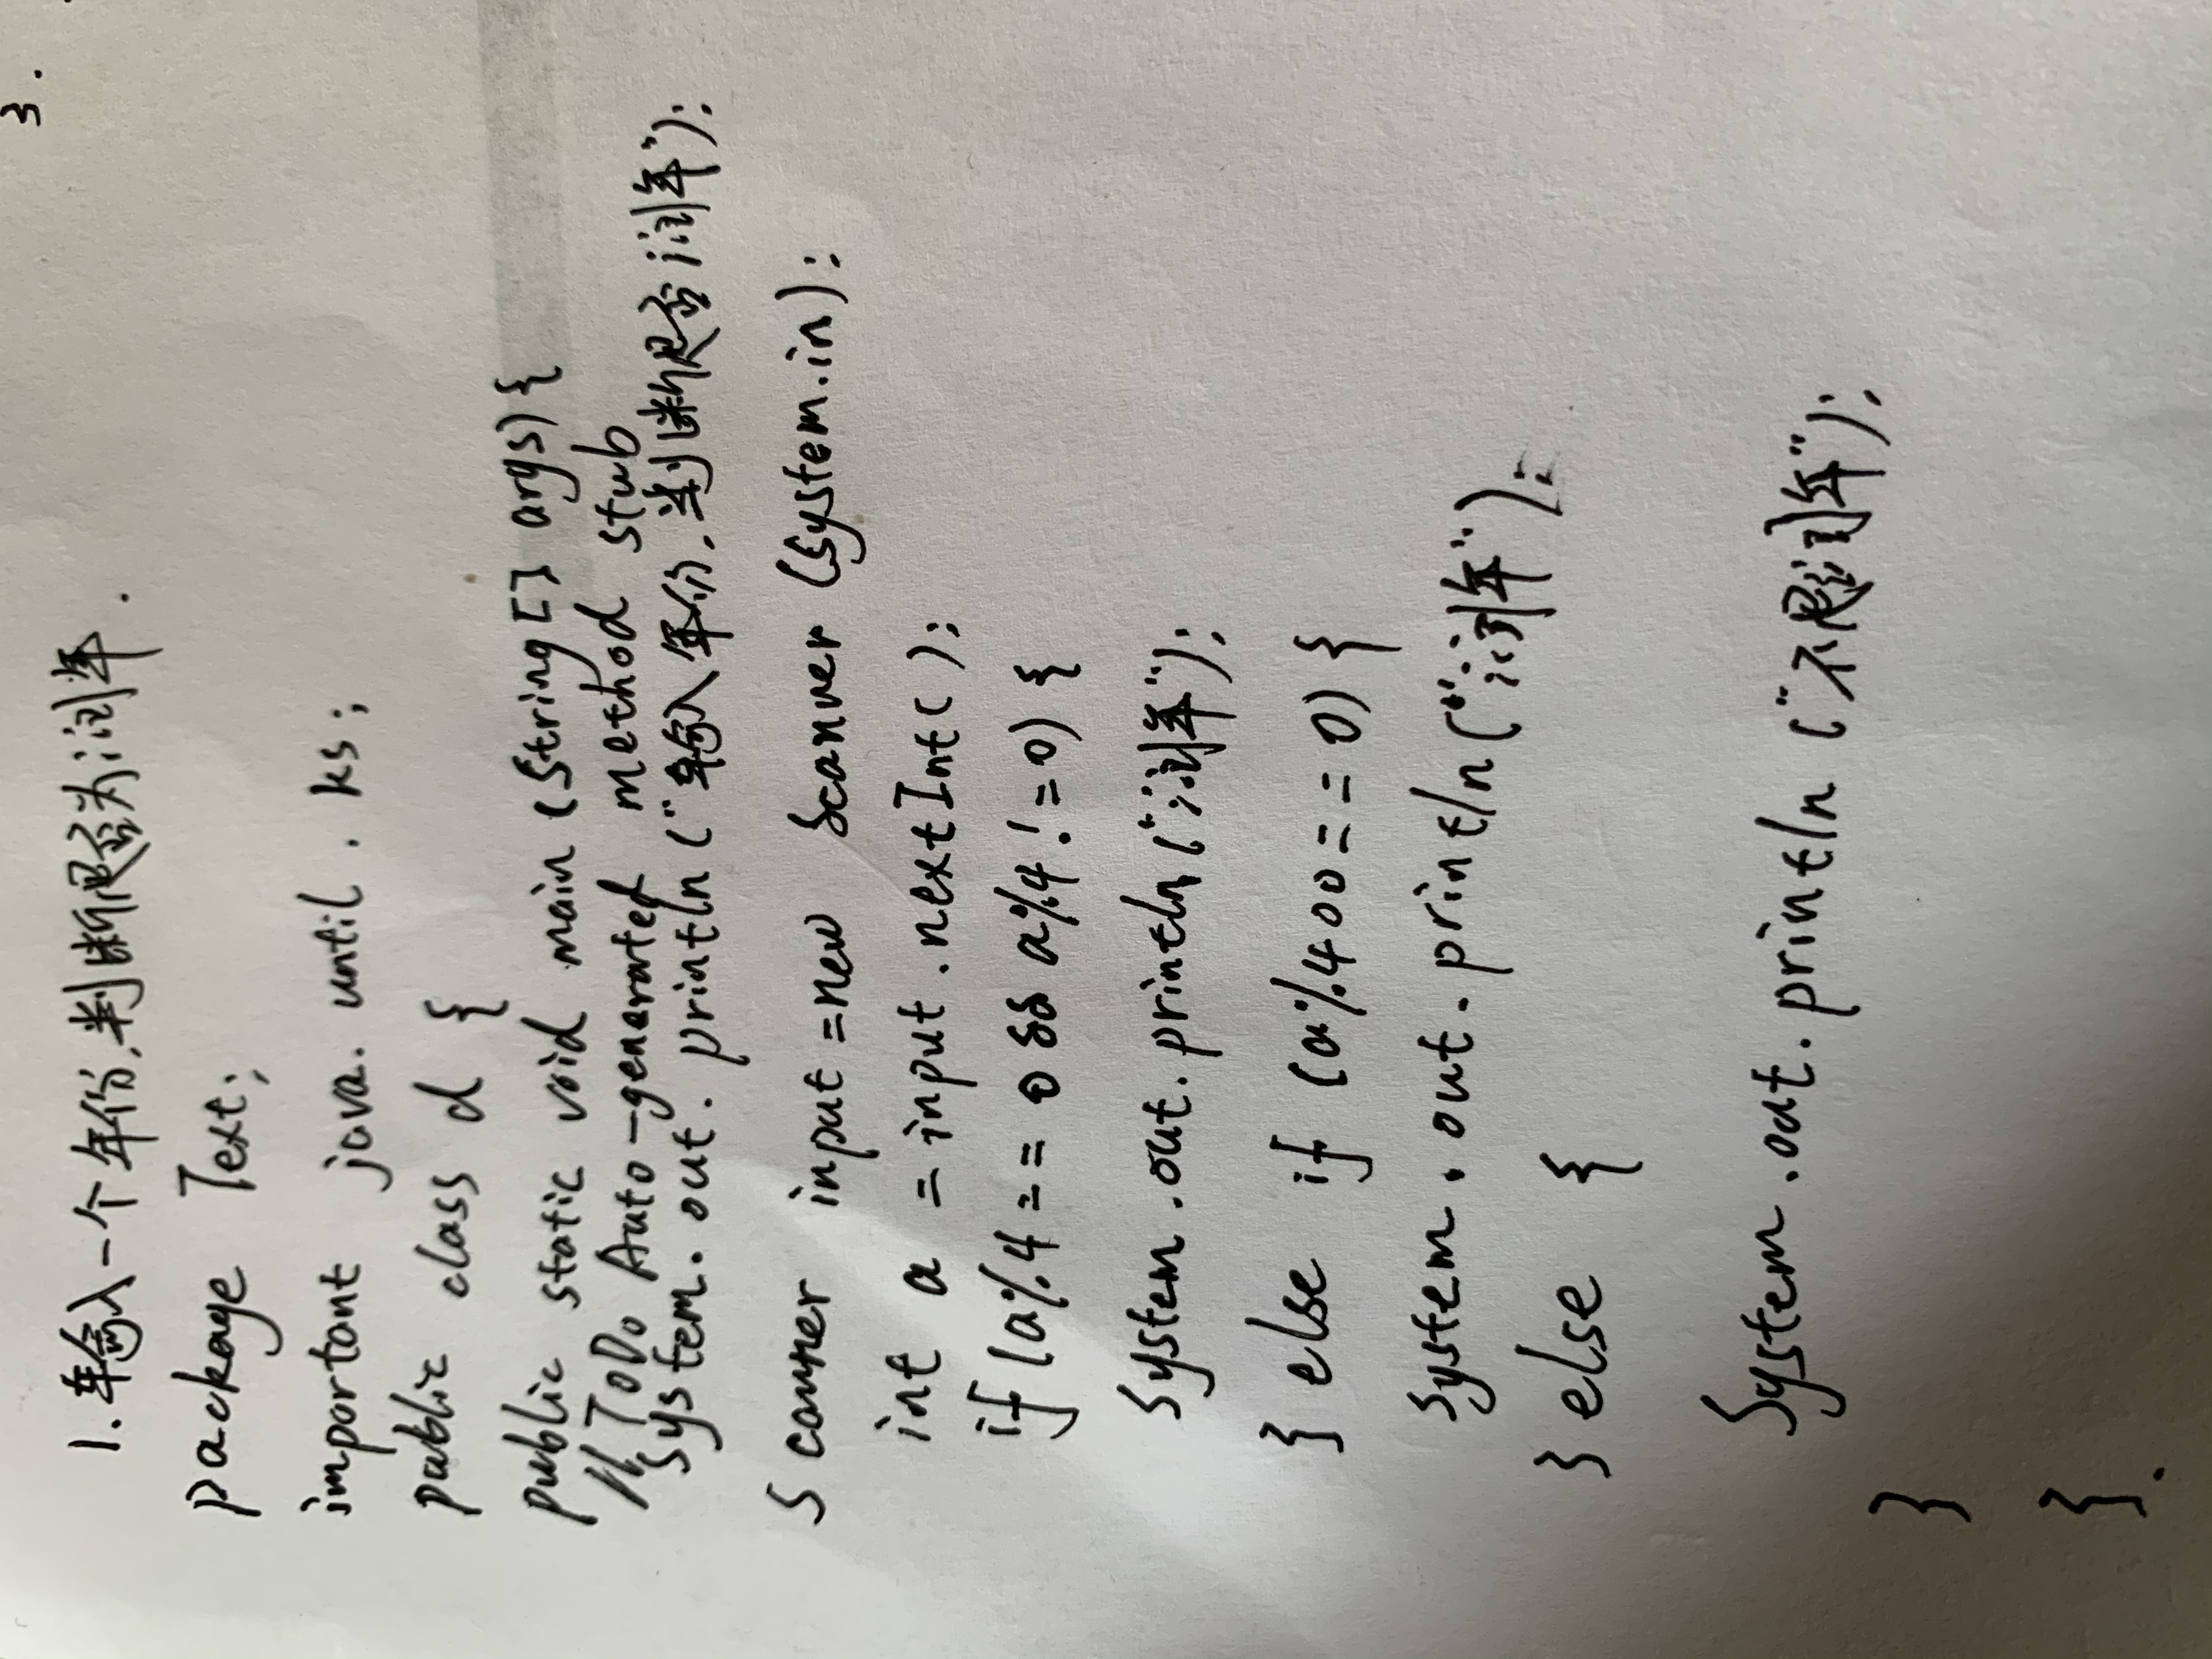 1.输入一个年份,判断是否为闰年.
package Text;
important java.until.ks;
public class d {
public static void main (String[] args){
// ToDo Auto-generated method stub
System.out.println("输入年份,判断是否闰年");
Scanner input=new Scanner (System.in);
int a = input.nextInt();
if(a%4==0 && a%4!=0){
System.out.println("闰年");
}else if (a%400==0){
System.out.println("闰年");
}else {
System.out.println("不是闰年");
}
}.
3.